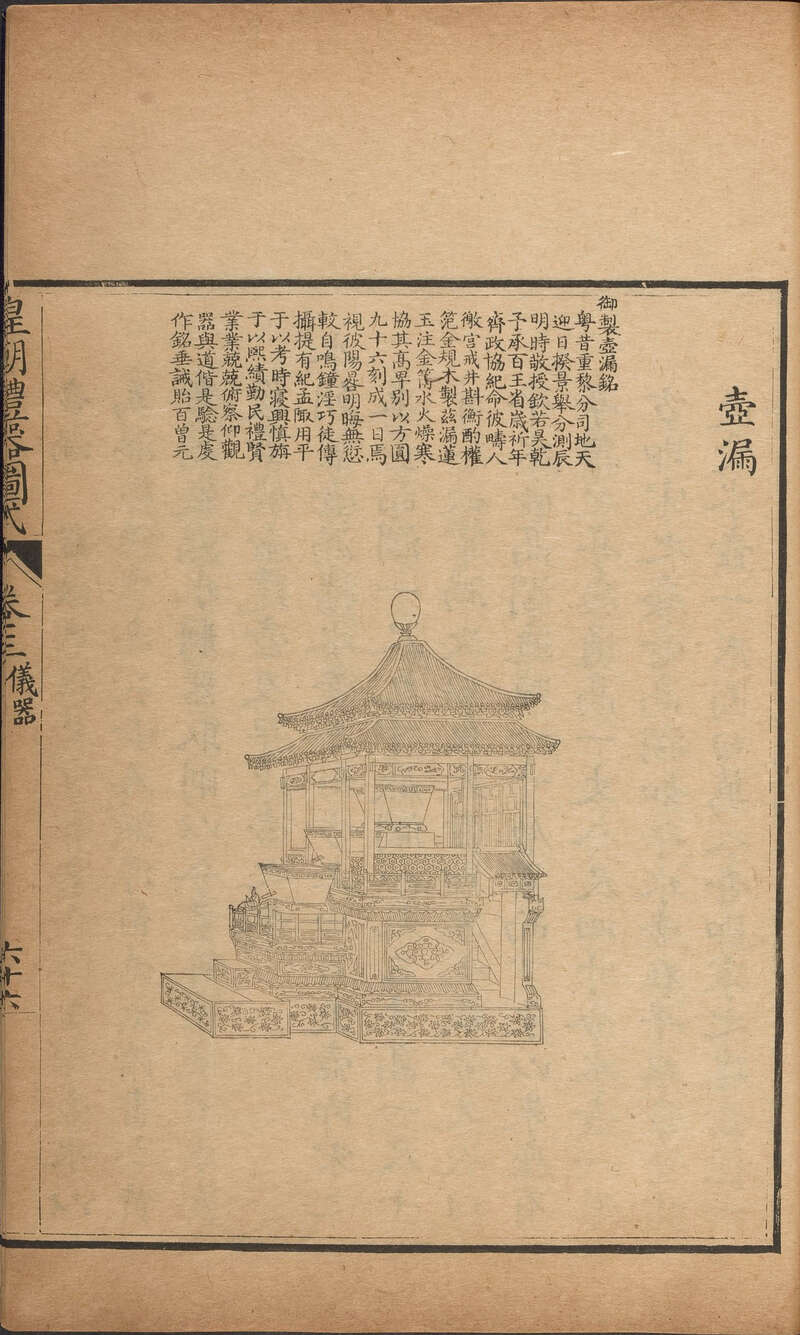 壺漏
御製壺漏銘
粤昔重黎分司地天
迎日揆景舉分測辰
明時敬授欽若昊乾
予承百王省歲祈年
齊政協紀命彼疇人
徵宫戒井斟衡酌權
笵金規木製茲漏蓮
玉注金籌水火燥寒
協其髙卑别以方圓
九十六刻成一日焉
視彼陽晷明晦無愆
較自鳴鐘淫巧徒傳
攝提有紀孟陬用平
于以考時寢興慎旃
于以熙績勤民禮賢
業業兢兢俯察仰觀
器與道偕是驗是虔
作銘垂誡貽百曽元
皇朝禮器圖式
卷三
儀器
六十六